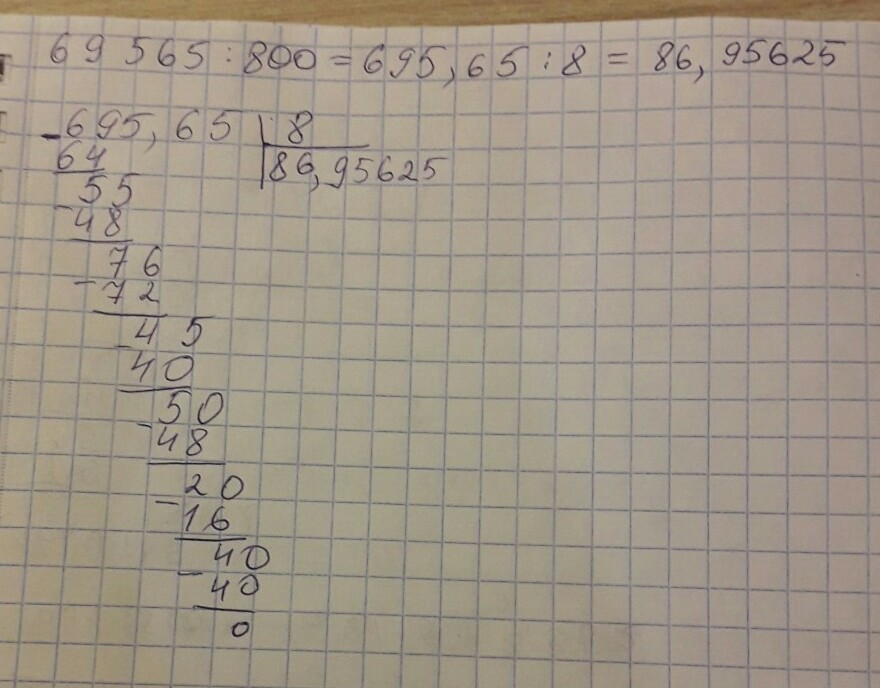 69 565 : 800 = 695,65 : 8 = 86,95625
-695,65 | 8
64 | 86,95625
55
-48
76
-72
45
-40
50
-48
20
-16
40
-40
0